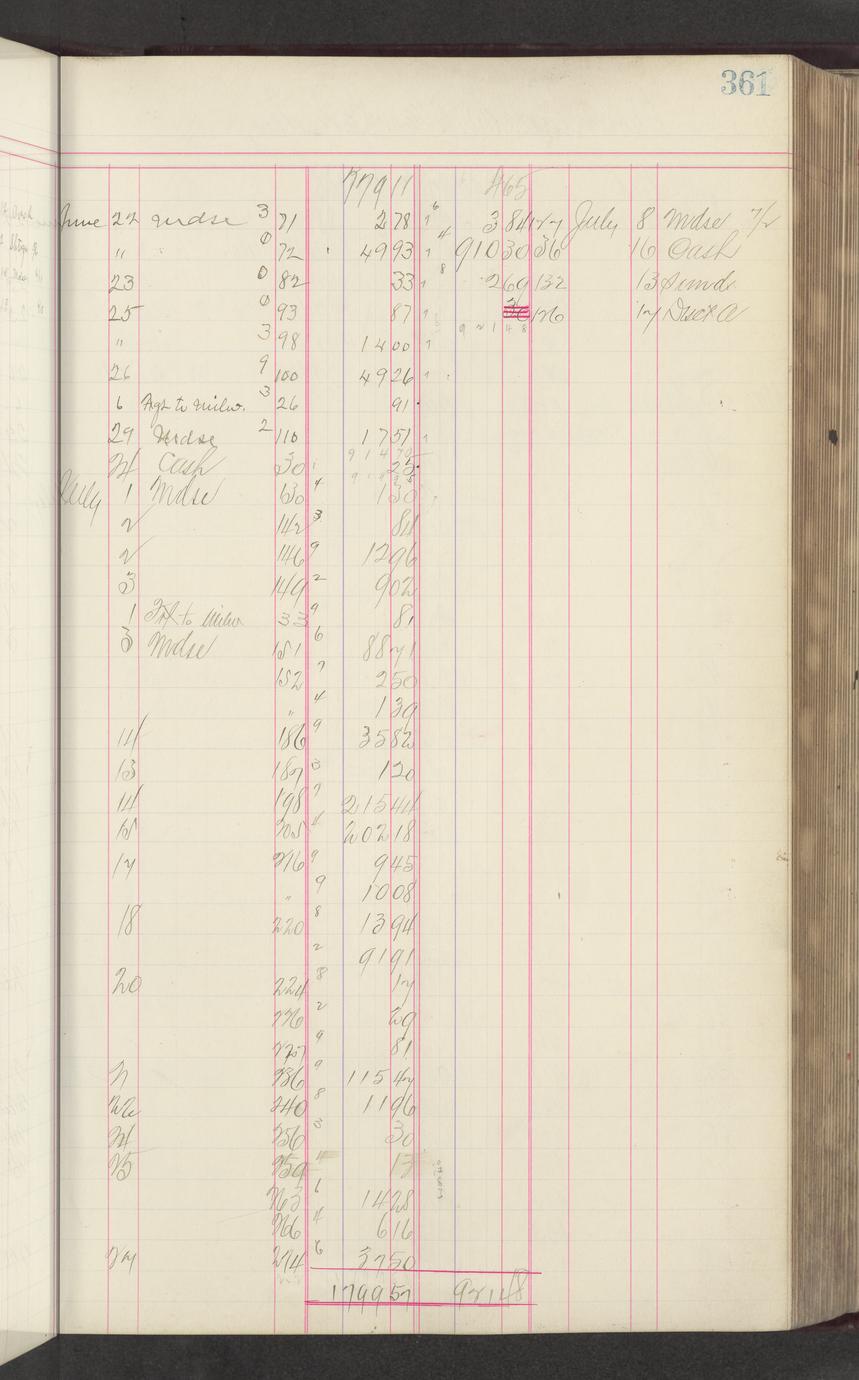 361
77911 465
June 22 Mdse 3 71 278 3 84 127 July 8 Mdse 7/2
" " 0 72 4993 91030 36 16 Cash
23 0 82 33 269 132 13 Sund
25 0 93 87 126 17
92148
" 3 98 1400
26 9 100 4926
6 Agt to Milw. 3 26 91
29 Mdse 2 110 1751
24 Cash 30 25
July 1 Mdse 130 4 130
2 142 3 84
2 146 9 1296
3 149 2 902
1 Frt to Milw 33 9 81
3 Mdse 151 6 8871
152 7 250
" 4 139
14 186 9 3582
13 187 3 120
14 198 7 21544
15 205 4 20218
17 216 9 945
" 9 1008
18 220 8 1394
2 9191
20 224 8 17
226 2 29
227 9 81
21 236 9 11547
22 240 8 1196
24 256 3 30
25 259 4 13
263 6 1428
266 4 616
27 274 6 3750
179957 92148